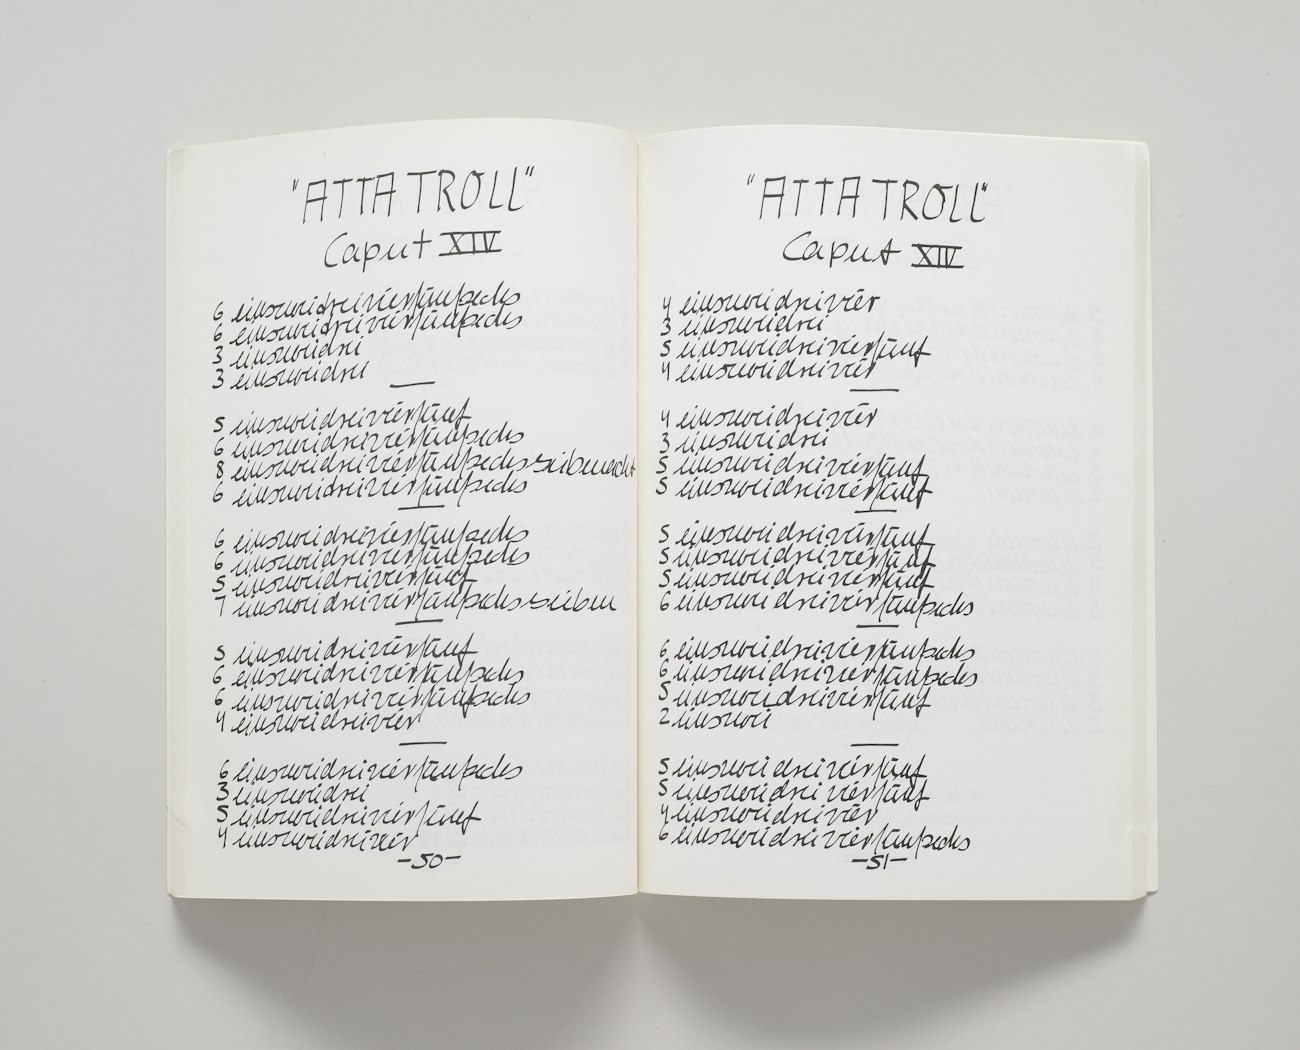 "ATTA TROLL"
Caput XIV
6 einszweidreivierfünfsechs
6 einszweidreivierfünfsechs
3 einszweidrei
3 einszweidrei
5 einszweidreivierfünf
6 einszweidreivierfünfsechs
8 einszweidreivierfünfsechssiebenacht
6 einszweidreivierfünfsechs
6 einszweidreivierfünfsechs
6 einszweidreivierfünfsechs
5 einszweidreivierfünf
7 einszweidreivierfünfsechssieben
5 einszweidreivierfünf
6 einszweidreivierfünfsechs
6 einszweidreivierfünfsechs
4 einszweidreivier
6 einszweidreivierfünfsechs
3 einszweidrei
5 einszweidreivierfünf
4 einszweidreivier
-50-
"ATTA TROLL"
Caput XIV
4 einszweidreivier
3 einszweidrei
5 einszweidreivierfünf
4 einszweidreivier
4 einszweidreivier
3 einszweidrei
5 einszweidreivierfünf
5 einszweidreivierfünf
5 einszweidreivierfünf
5 einszweidreivierfünf
5 einszweidreivierfünf
6 einszweidreivierfünfsechs
6 einszweidreivierfünfsechs
6 einszweidreivierfünfsechs
5 einszweidreivierfünf
2 einszwei
5 einszweidreivierfünf
5 einszweidreivierfünf
4 einszweidreivier
6 einszweidreivierfünfsechs
-51-